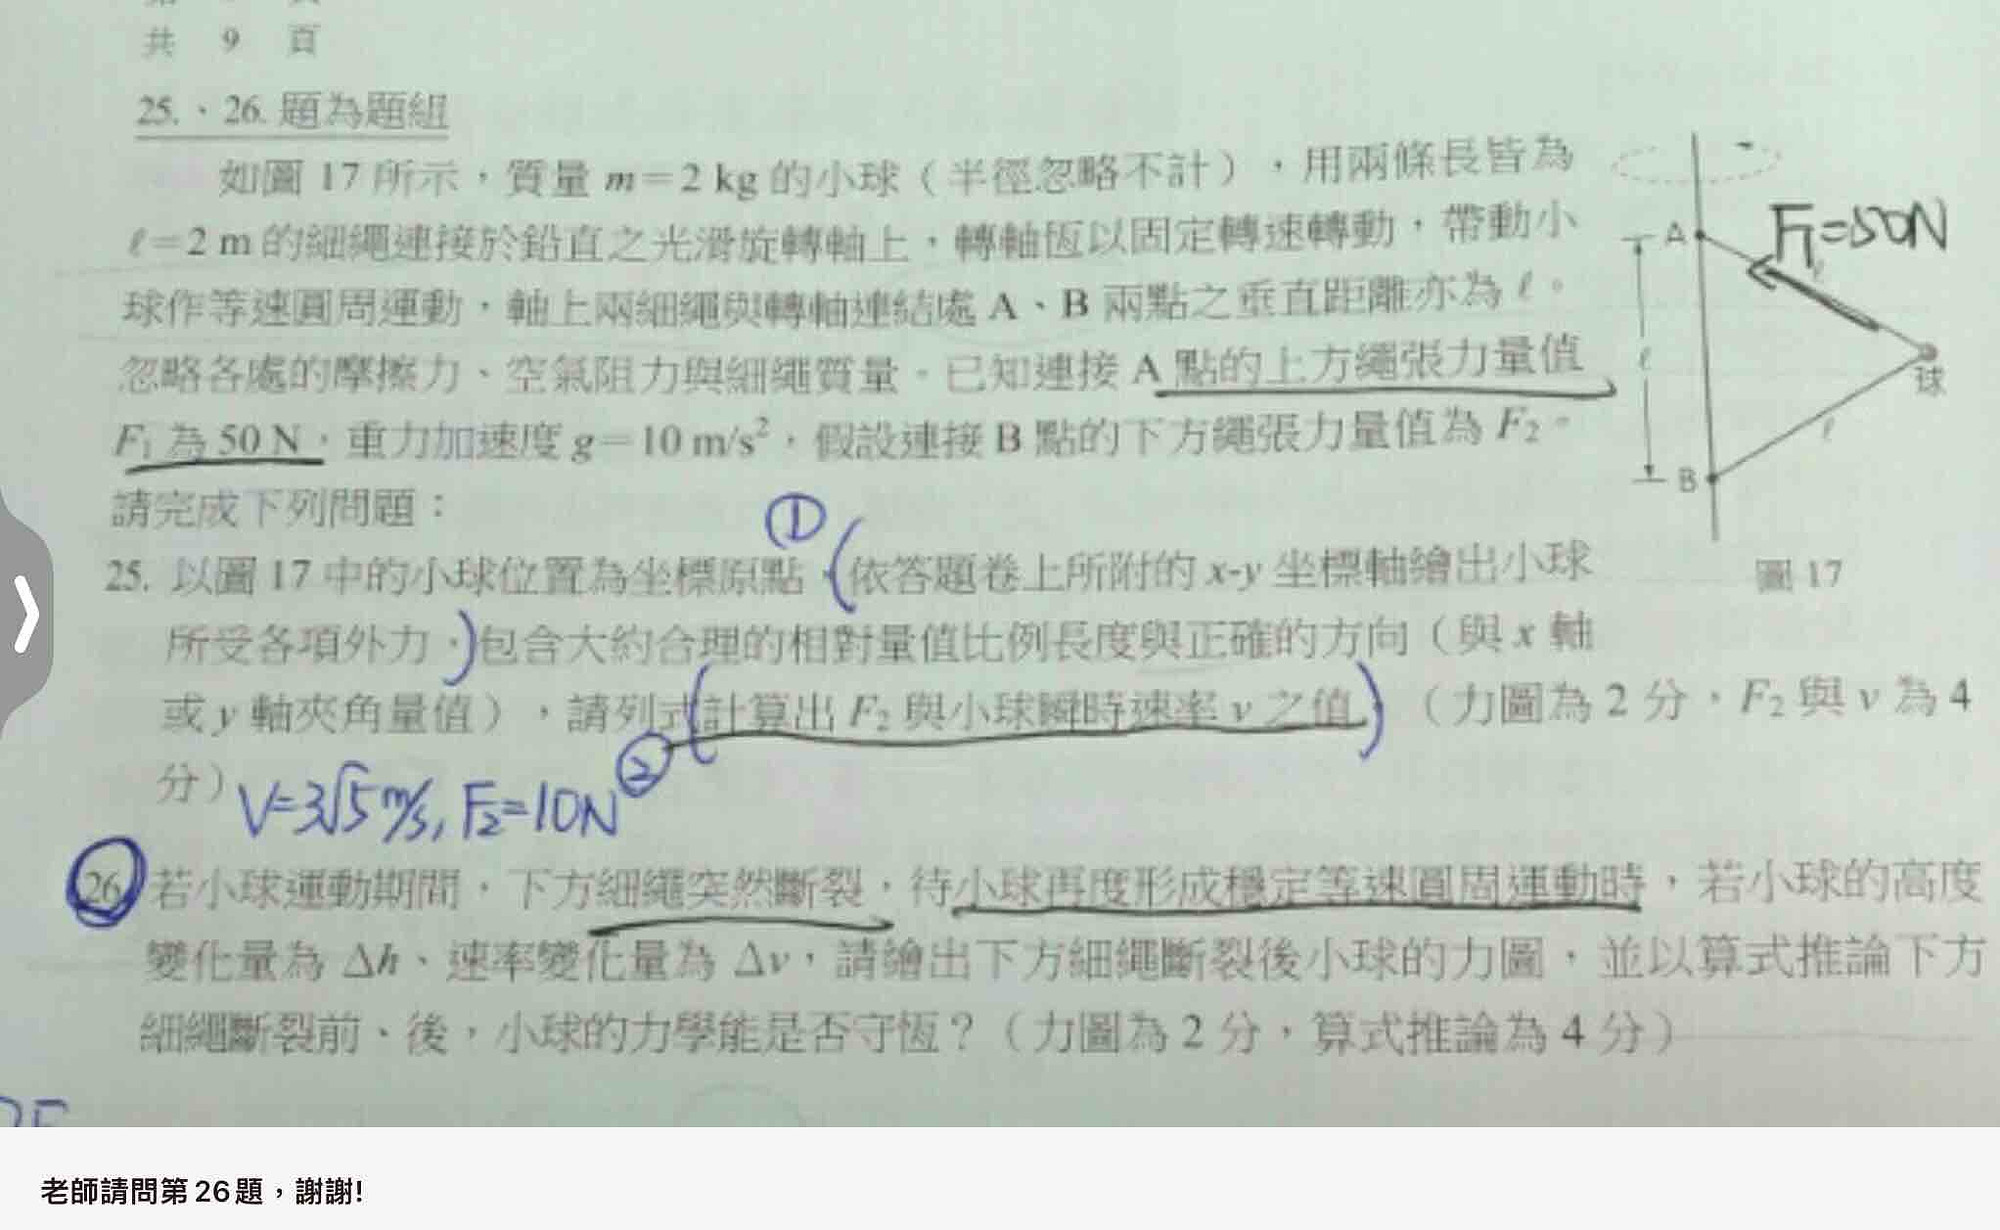 共 9 頁
25.、26. 題為題組
如圖 17 所示，質量 m=2 kg 的小球（半徑忽略不計），用兩條長皆為
ℓ=2 m 的細繩連接於鉛直之光滑旋轉軸上，轉軸恆以固定轉速轉動，帶動小
球作等速圓周運動，軸上兩細繩與轉軸連結處 A、B 兩點之垂直距離亦為 ℓ。
忽略各處的摩擦力、空氣阻力與細繩質量。已知連接 A 點的上方繩張力量值
F₁ 為 50 N，重力加速度 g=10 m/s²，假設連接 B 點的下方繩張力量值為 F₂。
請完成下列問題：
A
F₁=50N
ℓ
ℓ
球
B
ℓ
圖 17
①
25. 以圖 17 中的小球位置為坐標原點，(依答題卷上所附的 x-y 坐標軸繪出小球
所受各項外力，)包含大約合理的相對量值比例長度與正確的方向（與 x 軸
或 y 軸夾角量值），請列式(計算出 F₂ 與小球瞬時速率 v 之值)（力圖為 2 分，F₂ 與 v 為 4
分）
②
V=3√5 m/s, F₂=10N
26. 若小球運動期間，下方細繩突然斷裂，待小球再度形成穩定等速圓周運動時，若小球的高度
變化量為 Δh、速率變化量為 Δv，請繪出下方細繩斷裂後小球的力圖，並以算式推論下方
細繩斷裂前、後，小球的力學能是否守恆？（力圖為 2 分，算式推論為 4 分）
老師請問第26題，謝謝!